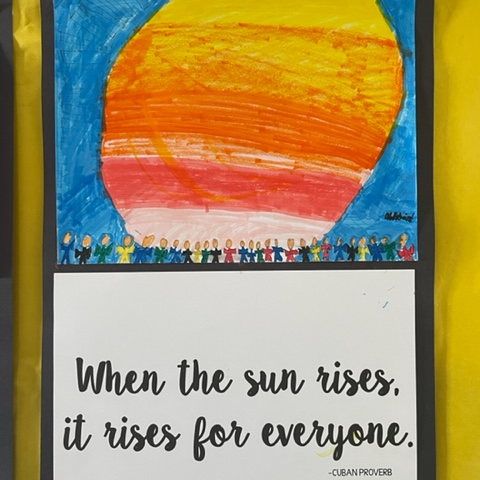 When the sun rises,
it rises for everyone.
-CUBAN PROVERB